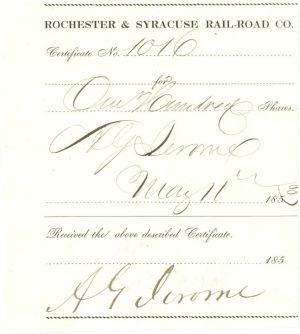 ROCHESTER & SYRACUSE RAIL-ROAD CO.
Certificate No. 1016
for
One Hundred Shares.
A G Jerome
May 11th 185
Received the above described Certificate.
185
A G Jerome